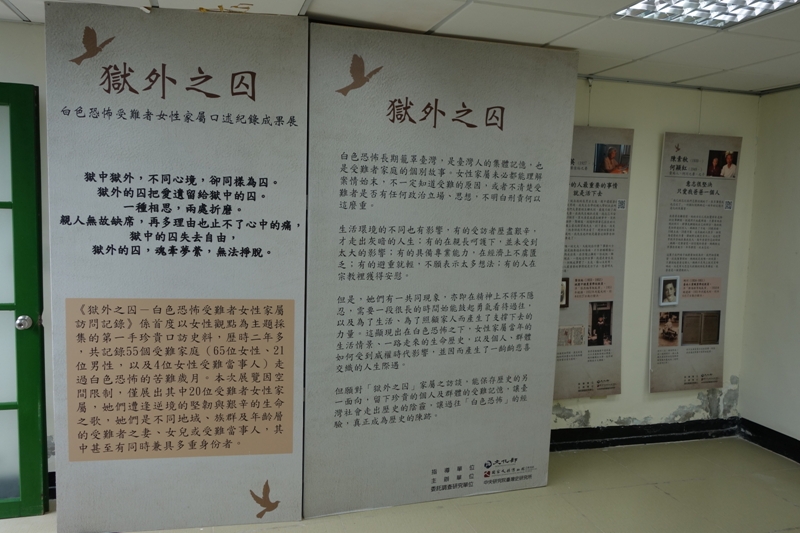 獄外之囚
白色恐怖受難者女性家屬口述紀錄成果展
獄中獄外，不同心境，卻同樣為囚。
獄外的囚把愛遺留給獄中的囚。
一種相思，兩處折磨。
親人無故缺席，再多理由也止不了心中的痛，
獄中的囚失去自由，
獄外的囚，魂牽夢縈，無法掙脫。
《獄外之囚－白色恐怖受難者女性家屬
訪問記錄》係首度以女性觀點為主題採
集的第一手珍貴口訪史料，歷時二年多
，共記錄55個受難家庭（65位女性、21
位男性，以及4位女性受難當事人）走
過白色恐怖的苦難歲月。本次展覽因空
間限制，僅展出其中20位受難者女性家
屬，她們遭逢逆境的堅韌與艱辛的生命
之歌，她們是不同地域、族群及年齡層
的受難者之妻、女兒或受難當事人，其
中甚至有同時兼具多重身份者。
獄外之囚
白色恐怖長期籠罩臺灣，是臺灣人的集體記憶，也
是受難者家庭的個別故事，女性家屬未必都能理解
案情始末，不一定知道受難的原因，或者不清楚受
難者是否有任何政治立場、思想，不明白刑責何以
這麼重。
生活環境的不同也有影響，有的受訪者歷盡艱辛，
才走出灰暗的人生；有的在親長呵護下，並未受到
太大的影響；有的具備專業能力，在經濟上不虞匱
乏；有的避重就輕，不願表示太多想法；有的人在
宗教裡獲得安慰。
但是，她們有一共同現象，亦即在精神上不得不隱
忍，需要一段很長的時間始能鼓起勇氣看待過往，
以及為了生活、為了照顧家人而產生了支撐下去的
力量。這顯現出在白色恐怖之下，女性家屬當年的
生活情景、一路走來的生命歷史，以及個人、群體
如何受到威權時代影響，並因而產生了一齣齣悲喜
交織的人生際遇。
但願對「獄外之囚」家屬之訪談，能保存歷史的另
一面向，留下珍貴的個人及群體的受難記憶，讓臺
灣社會走出歷史的陰霾，讓過往「白色恐怖」的經
驗，真正成為歷史的陳跡。
指導單位 文化部
主辦單位
委託調查研究單位 中央研究院臺灣史研究所
的人最重要的事情
就是活下去
陳素秋